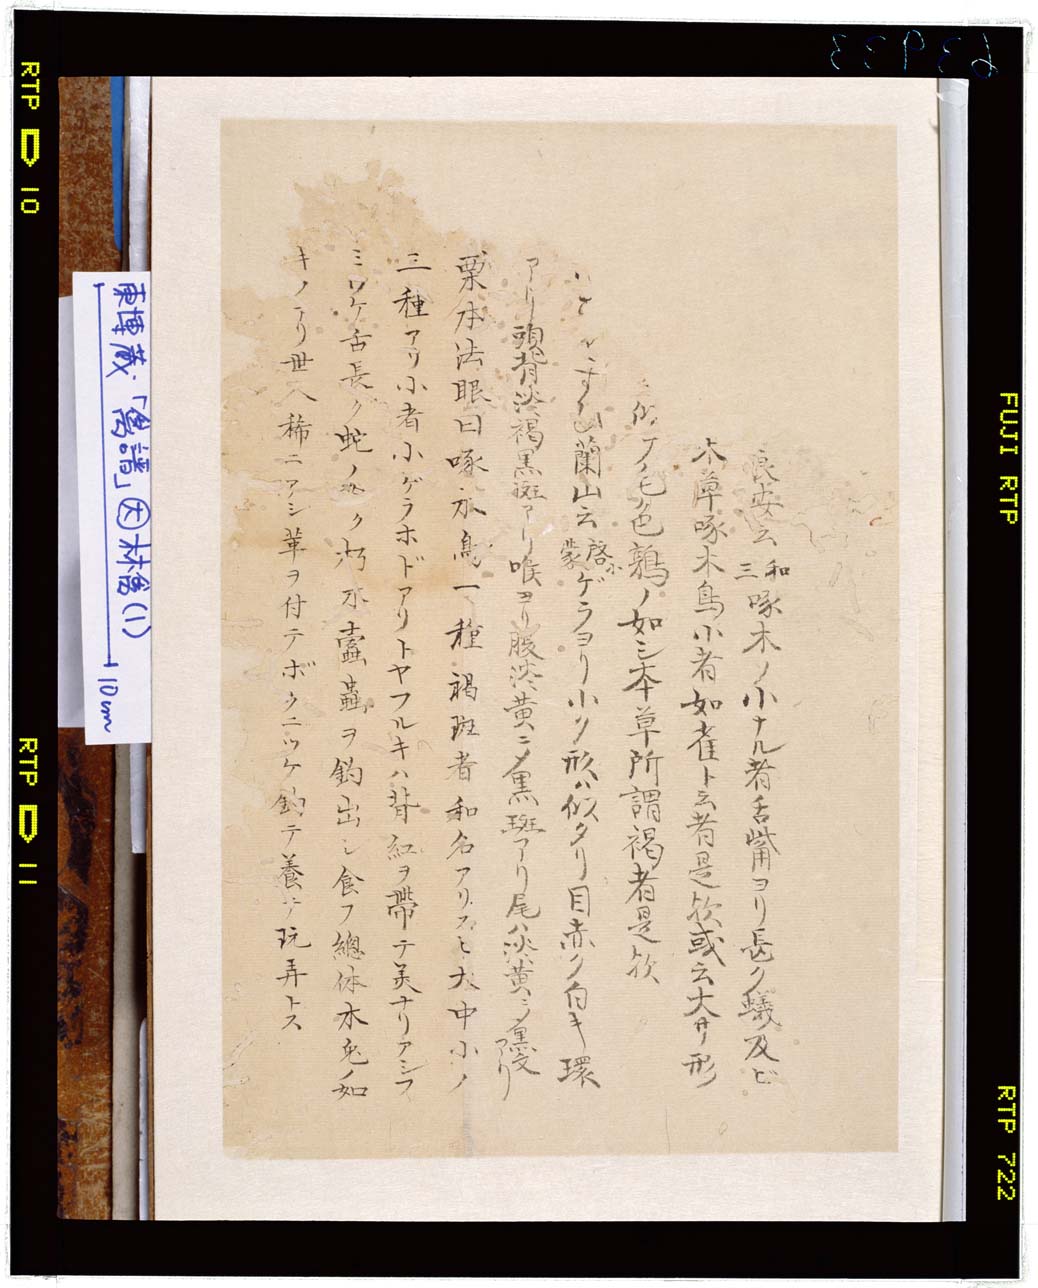 良安云 和三 啄木ノ小ナル者舌嘴ヨリ長ク蟻及ビ
木草啄木鳥小者如雀ト云者是欤或云大サ形
似フノ毛色鶉ノ如シ本草所謂褐者是欤
蘭山云 啓蒙 小ゲラヨリ小ソ形ハ似タリ目赤ク白キ環
アリ頭背淡褐黒斑アリ喉ヨリ腹淡黄ニメ黒斑アリ尾ハ淡黄ニメ黒文アリ
栗本法眼曰啄木鳥一種褐斑者和名アリスヒ大中小ノ
三種アリ小者小ゲラホドアリトヤフルキハ背紅ヲ帶テ美ナリアシフ
ミワケ舌長ク蛇ノ如ク朽木蠹蟲ヲ釣出シ食フ總体木兎ノ如
キノアリ世人稀ニアシ革ヲ付テボクニツケ釣テ養テ玩弄トス
東博蔵「鳥譜」大 林禽(1)
10cm
RTP 10
RTP 11
FUJI RTP
RTP 722
63933